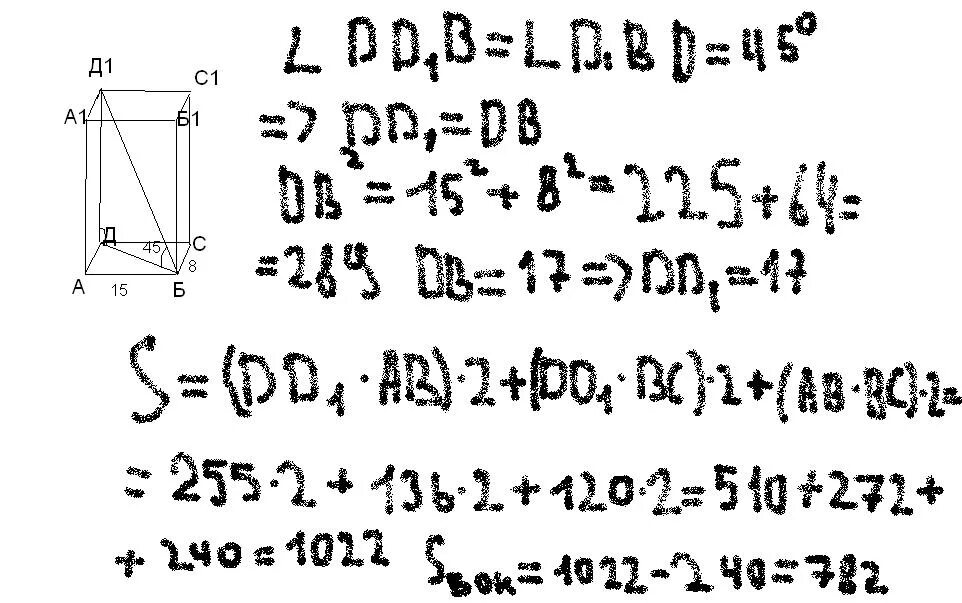 Д1
С1
А1
Б1
Д
45
С
8
А
15
Б
∠ DD₁B = ∠ D₁BD = 45⁰
=> DD₁ = DB
DB² = 15² + 8² = 225 + 64 =
= 289 DB = 17 => DD₁ = 17
S = (DD₁ · AB) · 2 + (DD₁ · BC) · 2 + (AB · BC) · 2 =
= 255 · 2 + 136 · 2 + 120 · 2 = 510 + 272 +
+ 240 = 1022 Sбок = 1022 - 240 = 782